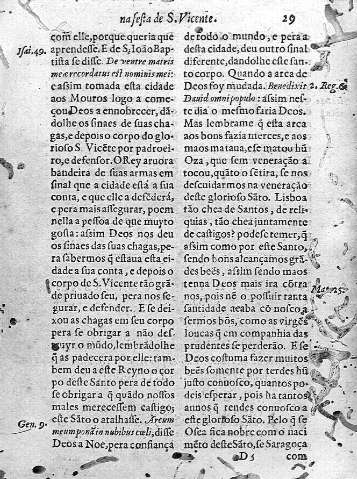 na festa de S. Vicente. 29
com elle, porque queria que
aprendesse. E de S. Ioão Bap
tista se disse. De ventre matris
Isai. 49.
meæ recordatus est nominis mei:
e assim tomada esta cidade
aos Mouros logo a come-
çou Deos a ennobrecer, dã-
dolhe os sinaes de suas cha-
gas, e depois o corpo do glo-
rioso S. Vicẽte por padroei-
ro, e defensor. O Rey aruora
bandeira de suas armas em
sinal que a cidade está a sua
conta, e que elle a defẽderá,
e pera mais assegurar, poem
nella a pessoa de que muyto
gosta: assim Deos nos deu
os sinaes das suas chagas, pe-
ra sabermos q̃ estaua esta ci-
dade a sua conta, e depois o
corpo de S. Vicente tão grã-
de priuado seu, pera nos se-
gurar, e defender. E se dei-
xou as chagas em seu corpo
pera se obrigar a não des-
truyr o mũdo, lembrãdolhe
q̃ as padecera por elle: tam-
bem deu a este Reyno o cor
po deste Santo pera de todo
se obrigar a q̃ quãdo nossos
males merecessem castigo;
este Sãto o atalhasse. Arcum
Gen. 9.
meum ponã in nubibus cæli, disse
Deos a Noe, pera confiança
de rodo o mundo, e pera a
desta cidade, deu outro sinal
diferente, dandolhe esse san-
to corpo. Quando a arca de
Deos foy mudada. Benedixit
2. Reg. 6
Dauid omni populo: assim nes-
te dia o mesmo faria Deos.
Mas lembramo q̃ esta arca
aos bons fazia merces, e aos
maos mataua, e se matou hũ
Oza, que sem veneração a
tocou, quãto o sẽtira, se nos
descuidarmos na veneração
deste glorioso Sãto. Lisboa
tão chea de Santos, de reli-
quias, tão chea juntamente
de castigos? podese temer, q̃
assim como por este Santo,
sendo bons alcançamos grã-
des beẽs, assim sendo maos
tenna Deos mais ira cõtra
nos, pois nẽ o possuir tanta
santidade acaba cõ nosco a
sermos bõs, como as virgẽs
loucas q̃ em companhia das
prudentes se perderão. E se
Deos costuma fazer muitos
beẽs somente por terdes hũ
justo conuosco, quantos po-
deis esperar, pois ha tantos
annos q̃ tendes conuosco a
este glorioso Sãto. Pelo q̃ se
Osca fica nobre com o naci
mẽto deste Sãto, se Saragoça
D 5 com